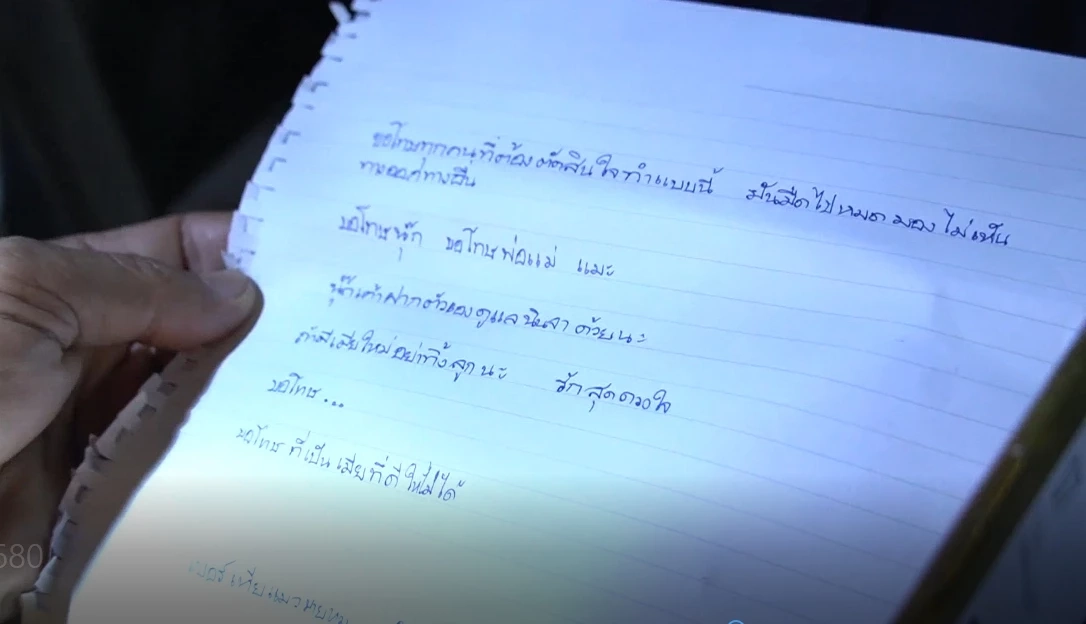 ขอโทษทุกคนที่ต้องตัดสินใจทำแบบนี้ มันมืดไปหมดมองไม่เห็น
ขอโทษนุ๊ก ขอโทษพ่อแม่ และ
เค้าฝากตัวเองดูแลนินจาด้วยนะ
ถ้ามีเมียใหม่อย่าทิ้งลูกนะ รักสุดดวงใจ
ขอโทษ...
ขอโทษที่เป็นเมียที่ดีให้ไม่ได้
580